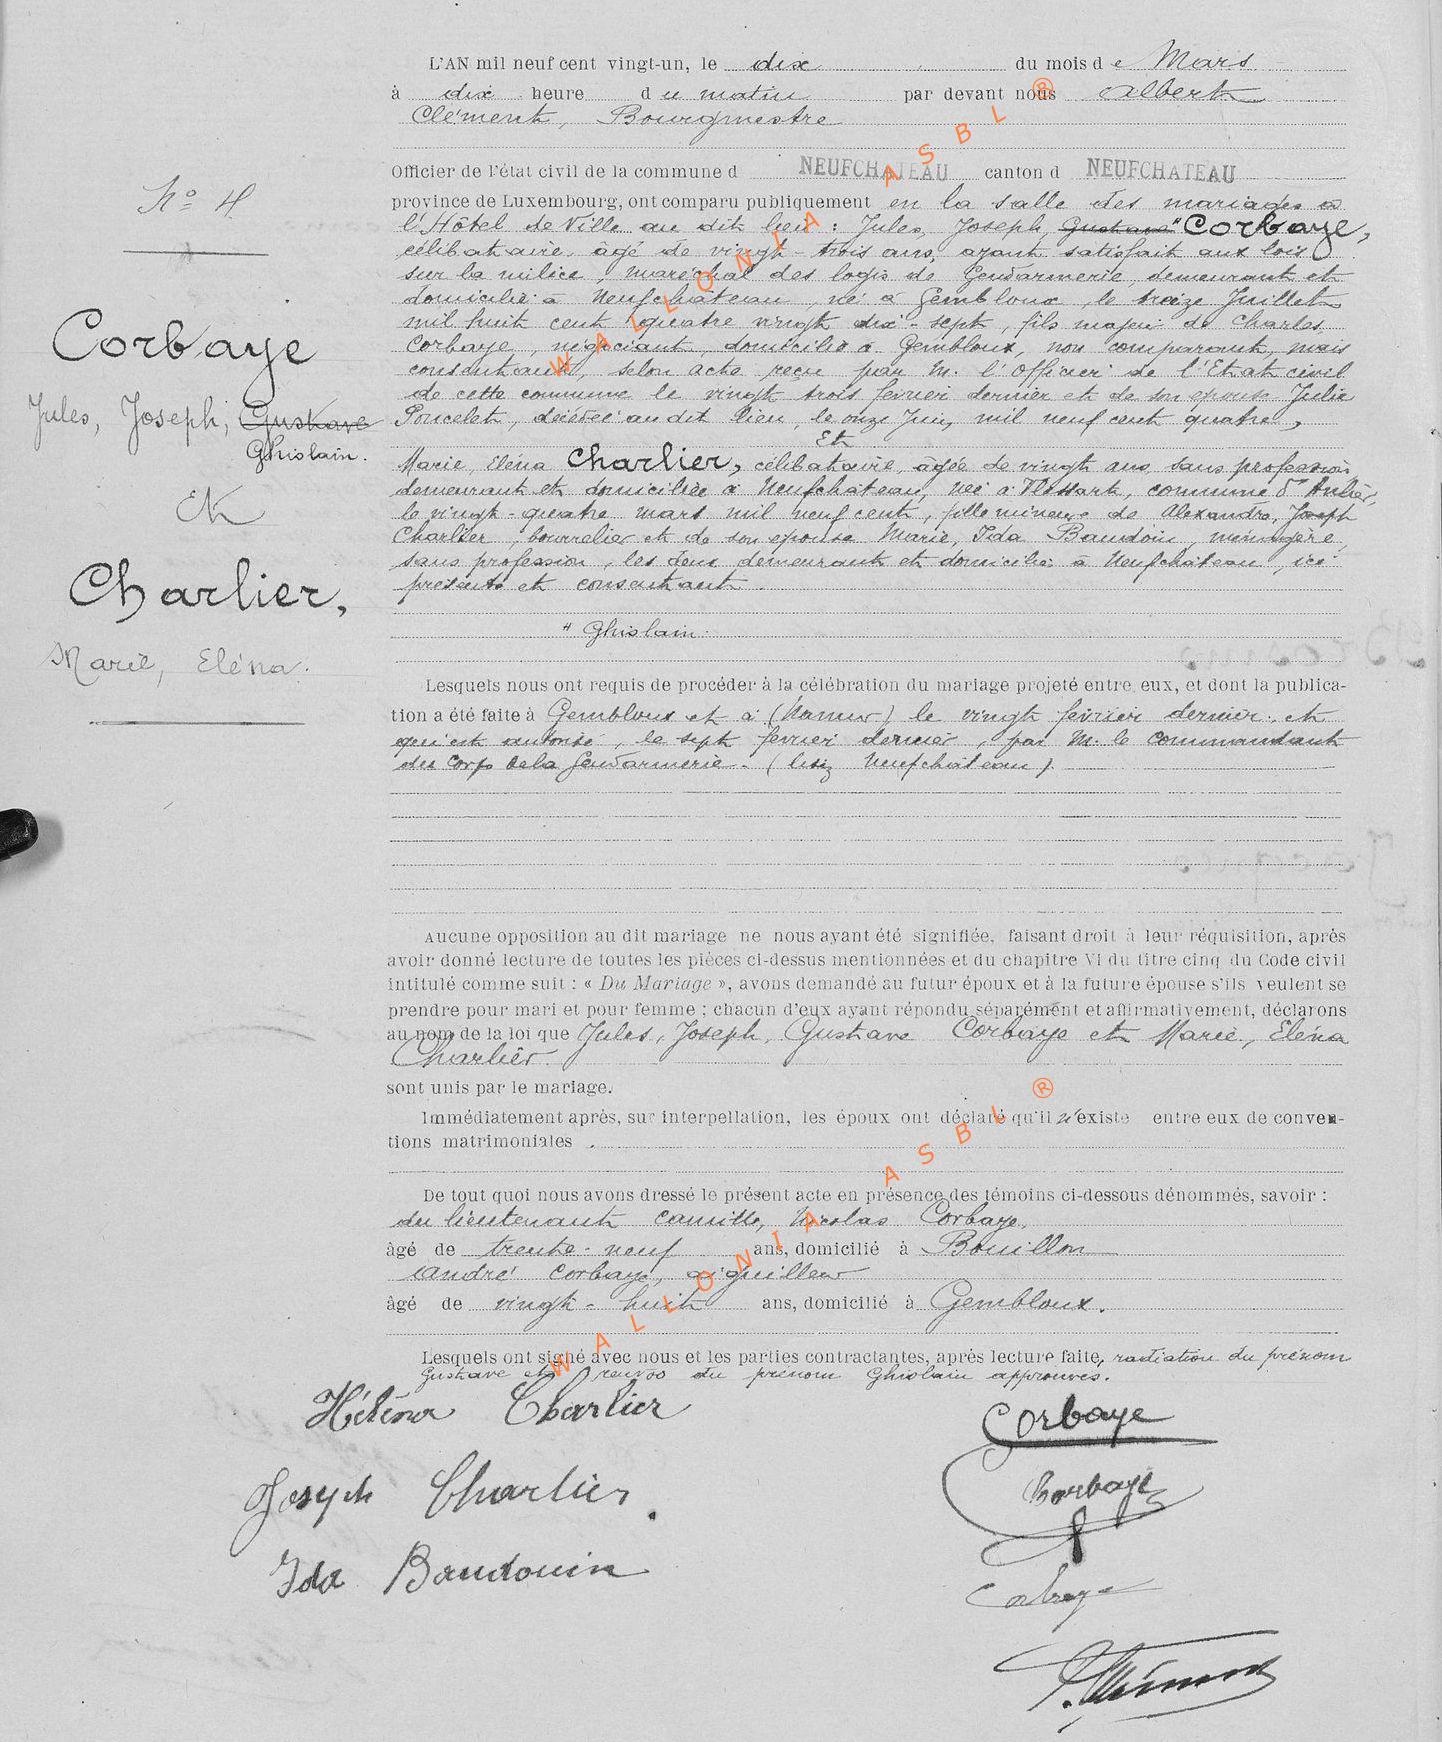 L'AN mil neuf cent vingt-un, le dix du mois de Mars
à dix heure du matin par devant nous Albert
Clément, Bourgmestre
Officier de l'état civil de la commune d NEUFCHATEAU canton d NEUFCHATEAU
province de Luxembourg, ont comparu publiquement en la salle des mariages à
l'Hôtel de Ville au dit lieu : Jules, Joseph, Gustave " Corbaye,
célibataire, âgé de vingt-trois ans, ayant satisfait aux lois
sur la milice, maréchal des logis de Gendarmerie, demeurant et
domicilié à Neufchâteau, né à Gembloux, le treize Juillet
mil huit cent quatre vingt dix-sept, fils majeur de Charles
Corbaye, négociant, domicilié à Gembloux, non comparant, mais
consentant, selon acte reçu par M. l'Officier de l'Etat civil
de cette commune le vingt trois février dernier et de son epouse Julie
Poncelet, décédée au dit lieu, le onze Juin mil neuf cent quatre,
Et
Marie, Eléna Charlier, célibataire, âgée de vingt ans, sans profession
demeurant et domiciliée à Neufchâteau, née à Thossart, commune d'Anlier,
le vingt-quatre mars mil neuf cent, fille mineure de Alexandre, Joseph
Charlier, bourrelier et de son epouse Marie, Ida Baudoin, ménagère,
sans profession, les deux demeurant et domicilié à Neufchâteau, ici
présents et consentant.
" Ghislain.
Nº 4
Corbaye
Jules, Joseph, Gustave
Ghislain.
Et
Charlier,
Marie, Eléna.
Lesquels nous ont requis de procéder à la célébration du mariage projeté entre eux, et dont la publica-
tion a été faite à Gembloux et à (Namur) le vingt février dernier et
qui est autorisé, le sept février dernier, par M. le Commandant
des Corps de la Gendarmerie. (lisez Neufchâteau).
Aucune opposition au dit mariage ne nous ayant été signifiée, faisant droit à leur réquisition, après
avoir donné lecture de toutes les pièces ci-dessus mentionnées et du chapitre VI du titre cinq du Code civil
intitulé comme suit : « Du Mariage », avons demandé au futur époux et à la future épouse s'ils veulent se
prendre pour mari et pour femme ; chacun d'eux ayant répondu séparément et affirmativement, déclarons
au nom de la loi que Jules, Joseph, Gustave Corbaye et Marie, Eléna
Charlier.
sont unis par le mariage.
Immédiatement après, sur interpellation, les époux ont déclaré qu'il n'existe entre eux de conven-
tions matrimoniales .
De tout quoi nous avons dressé le présent acte en présence des témoins ci-dessous dénommés, savoir :
du lieutenant Camille, Nicolas Corbaye,
âgé de trente-neuf ans, domicilié à Bouillon
André Corbaye, aiguilleur
âgé de vingt-huit ans, domicilié à Gembloux.
Lesquels ont signé avec nous et les parties contractantes, après lecture faite, radiation du prénom
Gustave et renvoi du prénom Ghislain approuvés.
Héléna Charlier
Corbaye
Joseph Charlier.
Corbaye
Ida Baudouin
Corbaye
WALLONIA ASBL ®
WALLONIA ASBL ®